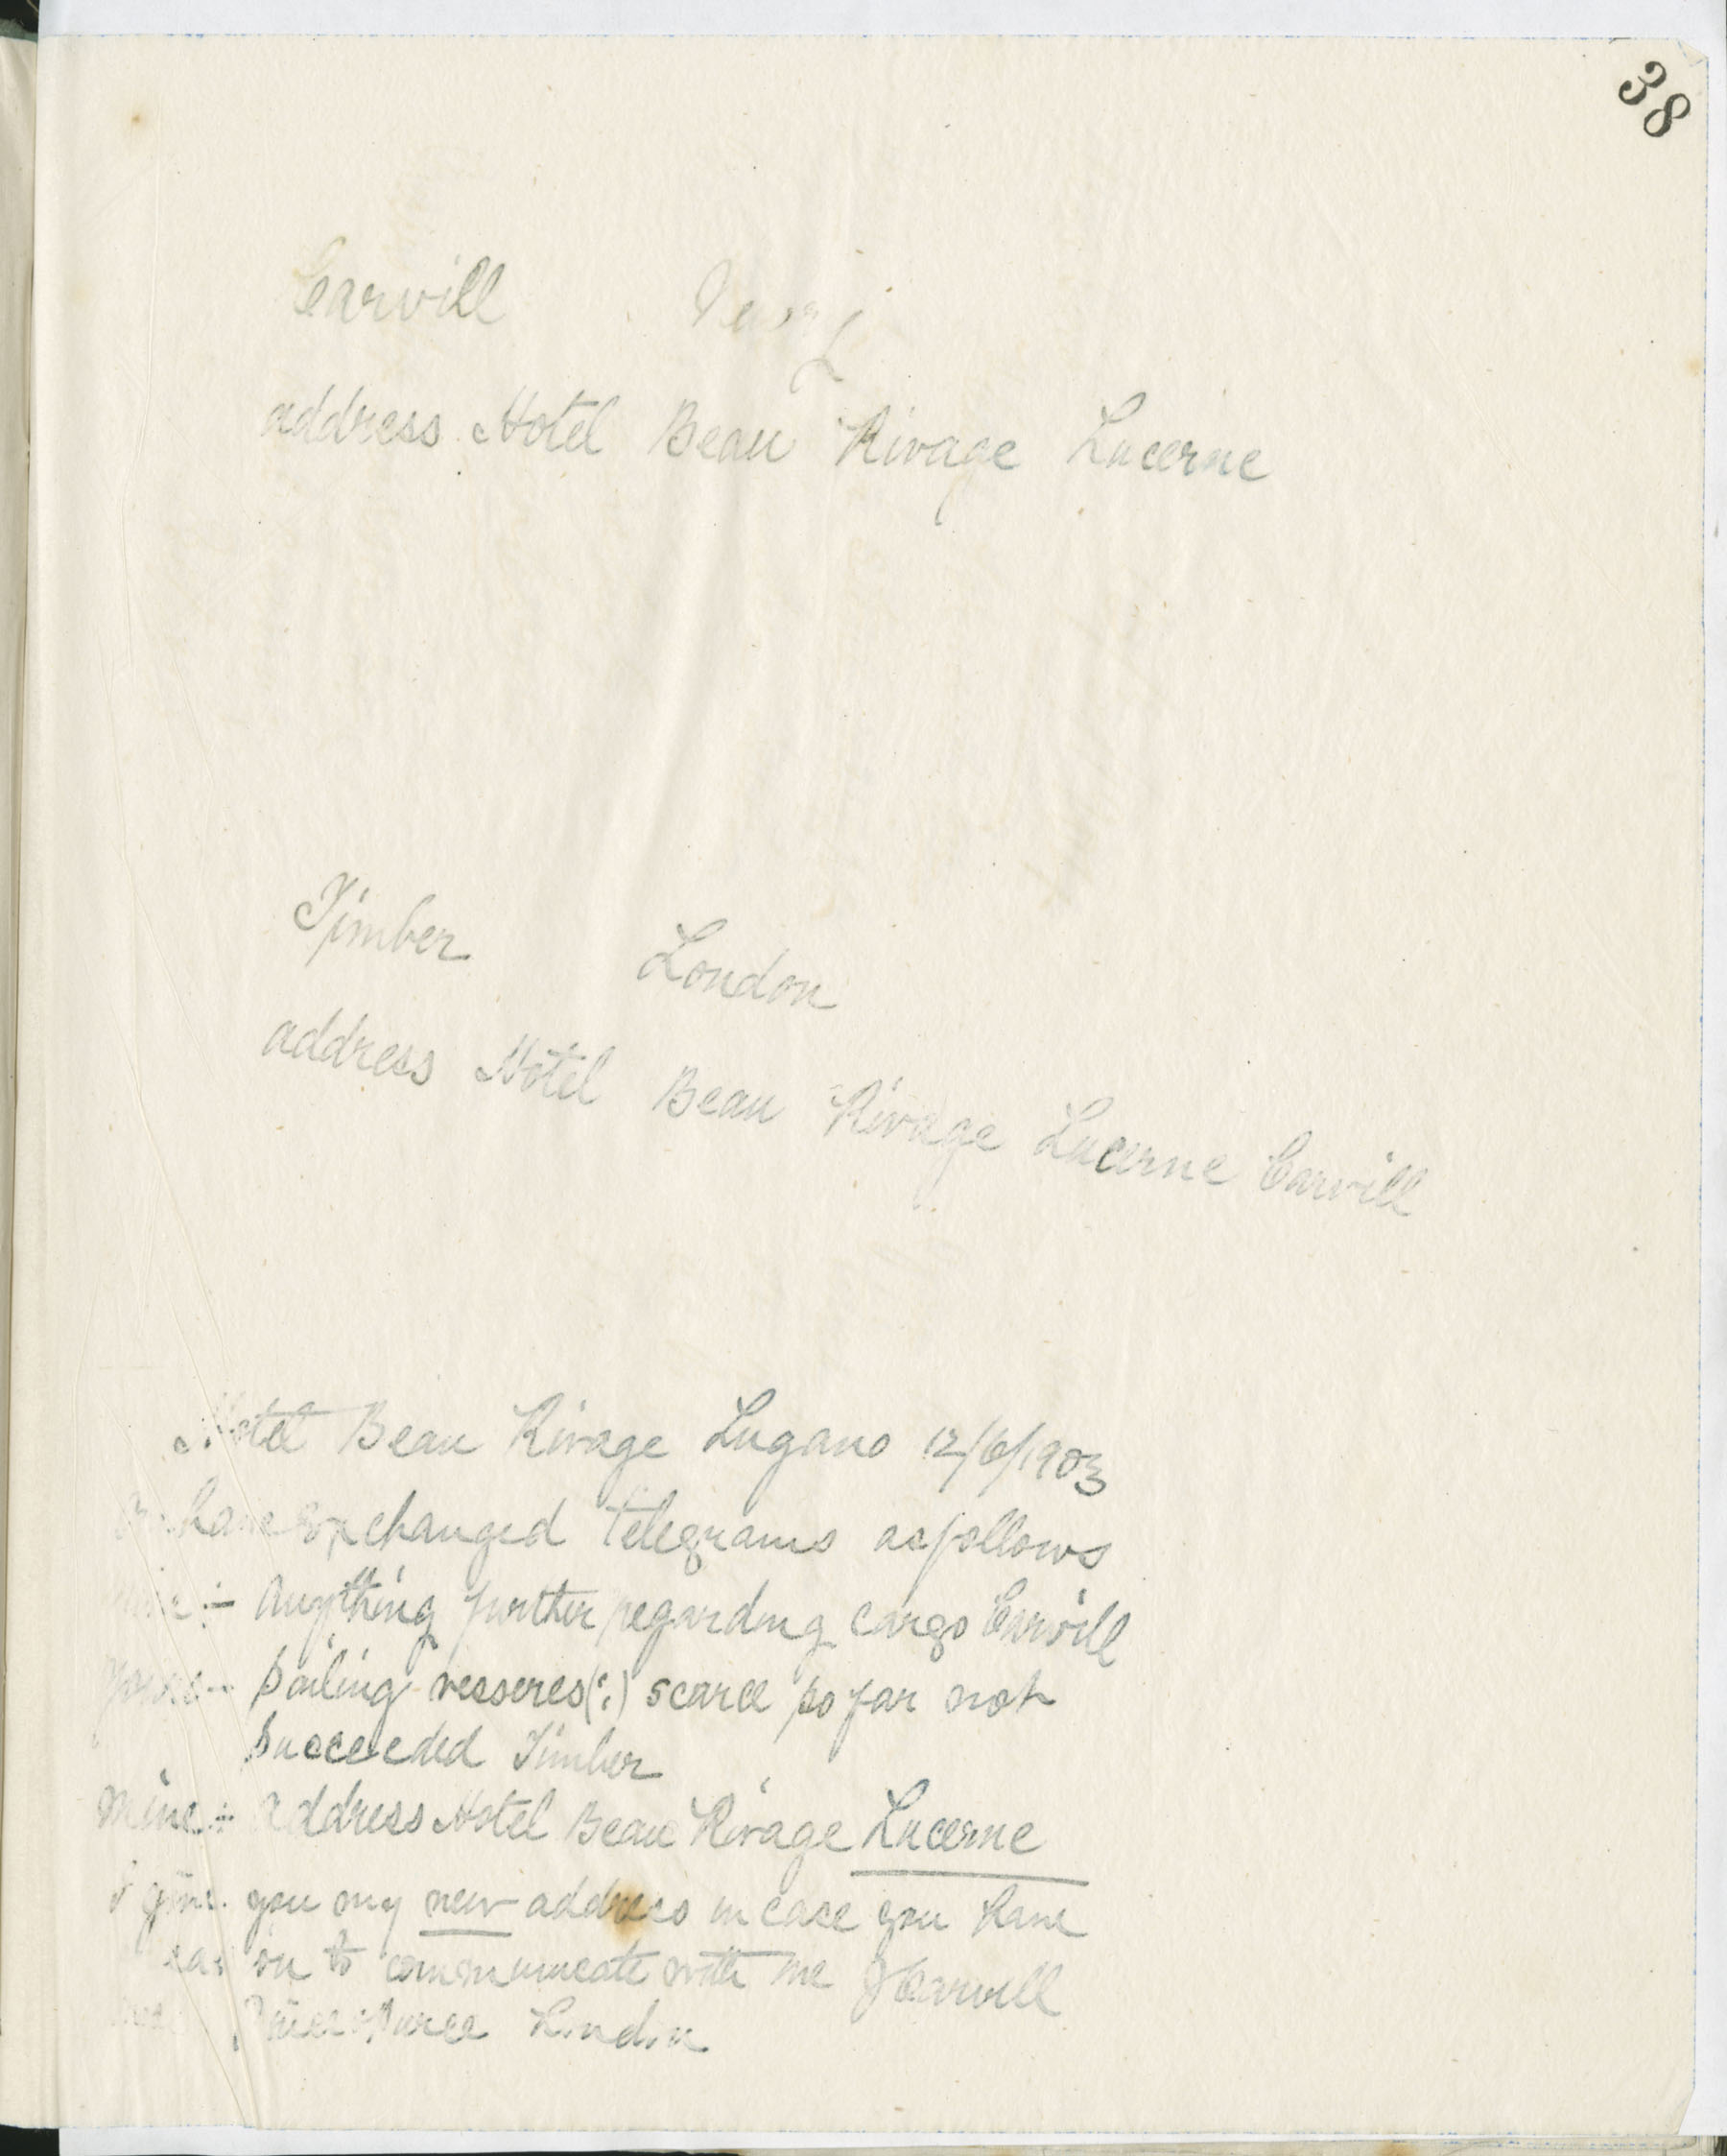 38
Carvill Newry
address Hotel Beau Rivage Lucerne
Timber London
address Hotel Beau Rivage Lucerne Carvill
Hotel Beau Rivage Lugano 12/6/1903
have exchanged telegrams as follows
mine :- Anything further regarding cargo Carvill
yours -- Sailing vesseres(?) scarce so far not
succeeded Timber
Mine :- Address Hotel Beau Rivage Lucerne
I give you my new address in case you have
reason to communicate with me J Carvill
Price Pierce London